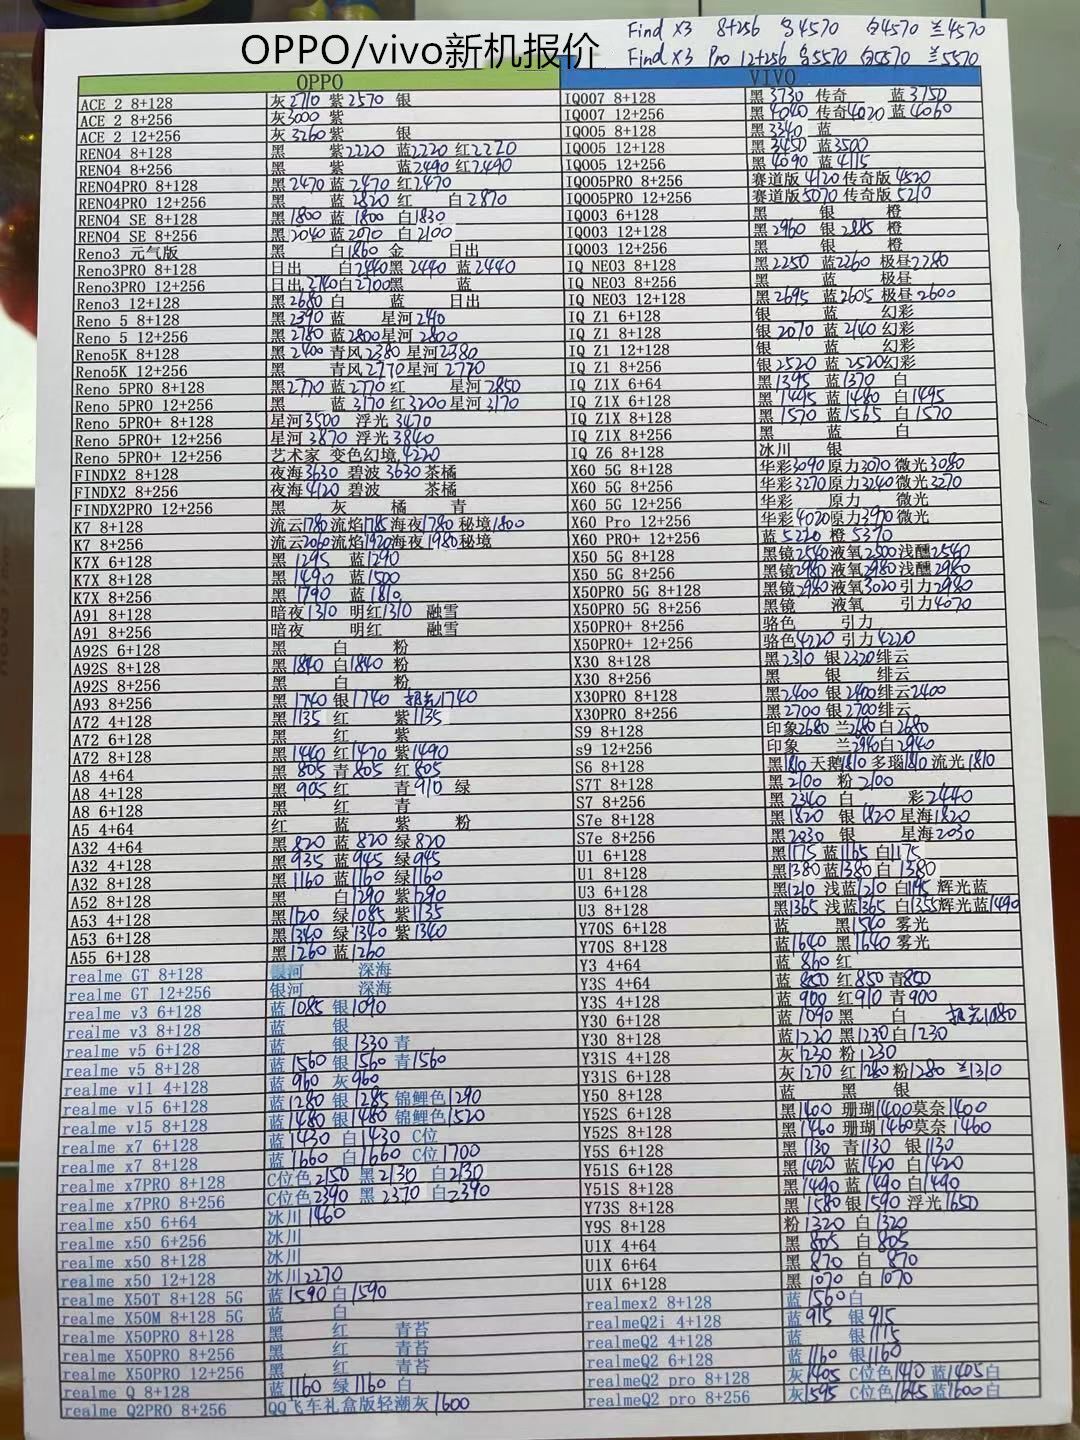 Find X3 8+256 黑4570 白4570 兰4570
OPPO/vivo新机报价
Find X3 Pro 12+256 黑5570 白5570 兰5570
OPPO
ACE 2 8+128 灰2710 紫2570 银
ACE 2 8+256 灰3000 紫
ACE 2 12+256 灰3260 紫 银
RENO4 8+128 黑 紫2220 蓝2220 红2270
RENO4 8+256 黑 紫 蓝2490 红2490
RENO4PRO 8+128 黑2470 蓝2470 红2470
RENO4PRO 12+256 黑 蓝2820 红 白2870
RENO4 SE 8+128 黑1800 蓝1800 白1830
RENO4 SE 8+256 黑2040 蓝2070 白2100
Reno3 元气版 黑 白1860 金 日出
Reno3PRO 8+128 日出 白2440 黑2440 蓝2440
Reno3PRO 12+256 日出2740 白2700 黑 蓝
Reno3 12+128 黑2680 白 蓝 日出
Reno 5 8+128 黑2390 蓝 星河2410
Reno 5 12+256 黑2780 蓝2800 星河2800
Reno5K 8+128 黑2400 青风2380 星河2380
Reno5K 12+256 黑 青风2770 星河2770
Reno 5PRO 8+128 黑2770 蓝2770 红 星河2850
Reno 5PRO 12+256 黑 蓝3170 红3200 星河3170
Reno 5PRO+ 8+128 星河3500 浮光3470
Reno 5PRO+ 12+256 星河3870 浮光3840
Reno 5PRO+ 12+256 艺术家 变色幻境.4220
FINDX2 8+128 夜海3630 碧波3630 茶橘
FINDX2 8+256 夜海4120 碧波 茶橘
FINDX2PRO 12+256 黑 灰 橘 青
K7 8+128 流云1780 流焰1785 海夜1780 秘境1800
K7 8+256 流云2060 流焰1920 海夜1980 秘境
K7X 6+128 黑1295 蓝1290
K7X 8+128 黑1490 蓝1500
K7X 8+256 黑1790 蓝1810
A91 8+128 暗夜1310 明红1310 融雪
A91 8+256 暗夜 明红 融雪
A92S 6+128 黑 白 粉
A92S 8+128 黑1840 白1840 粉
A92S 8+256 黑 白 粉
A93 8+256 黑1740 银1740 极光1740
A72 4+128 黑1135 红 紫1135
A72 6+128 黑 红 紫
A72 8+128 黑1440 红1470 紫1490
A8 4+64 黑805 青805 红805
A8 4+128 黑905 红 青910 绿
A8 6+128 黑 红 青
A5 4+64 红 蓝 紫 粉
A32 4+64 黑820 蓝820 绿820
A32 4+128 黑935 蓝945 绿945
A32 8+128 黑1160 蓝1160 绿1160
A52 8+128 黑 白1290 紫1290
A53 4+128 黑1120 绿1085 紫1135
A53 6+128 黑1340 绿1340 紫1340
A55 6+128 黑1260 蓝1260
realme GT 8+128 银河 深海
realme GT 12+256 银河 深海
realme v3 6+128 蓝1085 银1090
realme v3 8+128 蓝 银
realme v5 6+128 蓝 银1330 青
realme v5 8+128 蓝1560 银1560 青1560
realme v11 4+128 蓝960 灰960
realme v15 6+128 蓝1280 银1285 锦鲤色1290
realme v15 8+128 蓝1480 银1480 锦鲤色1520
realme x7 6+128 蓝1430 白1430 C位
realme x7 8+128 蓝1660 白1660 C位1700
realme x7PRO 8+128 C位色2150 黑2130 白2130
realme x7PRO 8+256 C位色2390 黑2370 白2390
realme x50 6+64 冰川1460
realme x50 6+256 冰川
realme x50 8+128 冰川
realme x50 12+128 冰川2270
realme X50T 8+128 5G 蓝1590 白1590
realme X50M 8+128 5G 蓝 白
realme X50PRO 8+128 黑 红 青苔
realme X50PRO 8+256 黑 红 青苔
realme X50PRO 12+256 黑 红 青苔
realme Q 8+128 蓝1160 绿1160 白
realme Q2PRO 8+256 QQ飞车礼盒版轻潮灰1600
VIVO
IQ007 8+128 黑3730 传奇 蓝3750
IQ007 12+256 黑4040 传奇4020 蓝4060
IQ005 8+128 黑3340 蓝
IQ005 12+128 黑3450 蓝3500
IQ005 12+256 黑4090 蓝4115
IQ005PRO 8+256 赛道版4120 传奇版4520
IQ005PRO 12+256 赛道版5070 传奇版5210
IQ003 6+128 黑 银 橙
IQ003 12+128 黑2960 银2885 橙
IQ003 12+256 黑 银 橙
IQ NEO3 8+128 黑2250 蓝2260 极昼2280
IQ NEO3 8+256 黑 蓝 极昼
IQ NEO3 12+128 黑2695 蓝2605 极昼2600
IQ Z1 6+128 银 蓝 幻彩
IQ Z1 8+128 银2070 蓝2140 幻彩
IQ Z1 12+128 银 蓝 幻彩
IQ Z1 8+256 银2520 蓝2520 幻彩
IQ Z1X 6+64 黑1395 蓝1370 白
IQ Z1X 6+128 黑1495 蓝1480 白1495
IQ Z1X 8+128 黑1570 蓝1565 白1570
IQ Z1X 8+256 黑 蓝 白
IQ Z6 8+128 冰川 银
X60 5G 8+128 华彩3090 原力3070 微光3080
X60 5G 8+256 华彩3270 原力3240 微光3270
X60 5G 12+256 华彩 原力 微光
X60 Pro 12+256 华彩4020 原力3970 微光
X60 PRO+ 12+256 蓝5220 橙5370
X50 5G 8+128 黑镜2540 液氧2500 浅醺2540
X50 5G 8+256 黑镜2980 液氧2980 浅醺2980
X50PRO 5G 8+128 黑镜2980 液氧3020 引力2980
X50PRO 5G 8+256 黑镜 液氧 引力4070
X50PRO+ 8+256 骆色 引力
X50PRO+ 12+256 骆色4220 引力4220
X30 8+128 黑2310 银2320 绯云
X30 8+256 黑 银 绯云
X30PRO 8+128 黑2400 银2400 绯云2400
X30PRO 8+256 黑2700 银2700 绯云
S9 8+128 印象2680 兰2680 白2680
s9 12+256 印象 兰2940 白2940
S6 8+128 黑1810 天鹅1810 多瑙1810 流光1810
S7T 8+128 黑2100 粉2100
S7 8+256 黑2340 白 彩2440
S7e 8+128 黑1820 银1820 星海1820
S7e 8+256 黑2030 银 星海2030
U1 6+128 黑1175 蓝1165 白1175
U1 8+128 黑1380 蓝1380 白1380
U3 6+128 黑1210 浅蓝1210 白1195 辉光蓝
U3 8+128 黑1365 浅蓝1365 白1355 辉光蓝1490
Y70S 6+128 蓝 黑1540 雾光
Y70S 8+128 蓝1640 黑1640 雾光
Y3 4+64 蓝860 红
Y3S 4+64 蓝850 红850 青850
Y3S 4+128 蓝900 红910 青900
Y30 6+128 蓝1090 黑 白 极光1080
Y30 8+128 蓝1220 黑1230 白1230
Y31S 4+128 灰1230 粉1230
Y31S 6+128 灰1270 红1280 粉1280 兰1310
Y50 8+128 蓝 黑 银
Y52S 6+128 黑1400 珊瑚1400 莫奈1400
Y52S 8+128 黑1460 珊瑚1460 莫奈1460
Y5S 6+128 黑1130 青1130 银1130
Y51S 6+128 黑1420 蓝1420 白1420
Y51S 8+128 黑1490 蓝1490 白1490
Y73S 8+128 黑1580 银1590 浮光1650
Y9S 8+128 粉1320 白1320
U1X 4+64 黑805 白805
U1X 6+64 黑870 白870
U1X 6+128 黑1070 白1070
realmex2 8+128 蓝1560 白
realmeQ2i 4+128 蓝915 银915
realmeQ2 4+128 蓝 银1115
realmeQ2 6+128 蓝1160 银1160
realmeQ2 pro 8+128 灰1405 C位色1410 蓝1405 白
realmeQ2 pro 8+256 灰1595 C位色1645 蓝1600 白